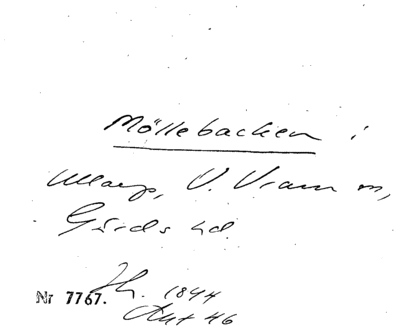 Möllebacken i
Ullarp, V. Vram sn,
Gärds hd.
Nr 7767. Jh. 1844
Akt 46